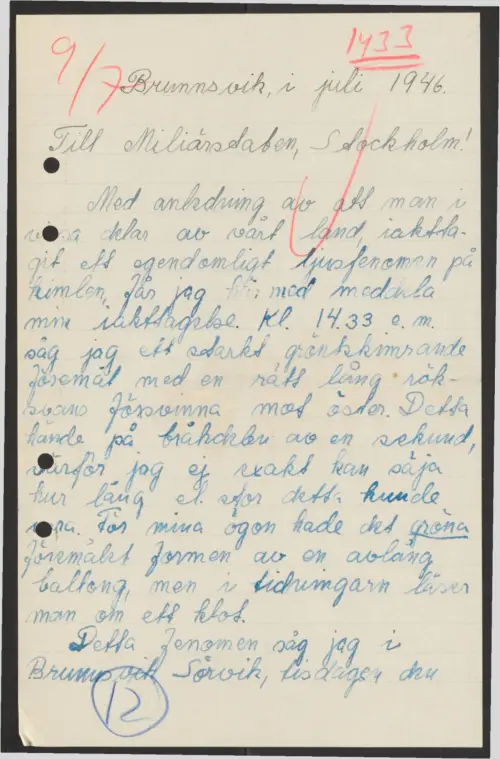 9/7
1433
Brunnsvik, i juli 1946.
Till Miliärstaben, Stockholm!
Med anledning av att man i
vissa delar av vårt land, iaktta-
git ett egendomligt ljusfenomen på
himlen, får jag här med meddela
min iakttagelse. Kl. 14.33 e. m.
såg jag ett starkt grönskimrande
föremål med en rätt lång rök-
svans försvinna mot öster. Detta
hände på bråkdelen av en sekund,
varför jag ej exakt kan säja
hur lång el. stor detta kunde
vara. För mina ögon hade det gröna
föremålet formen av en avlång
ballong, men i tidningarn läser
man om ett klot.
Detta fenomen såg jag i
Brunnsvik Sörvik, tisdagen den
12